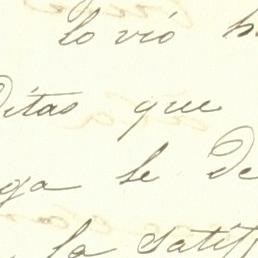 lo vió h
ditas que
ga se de
la satisf